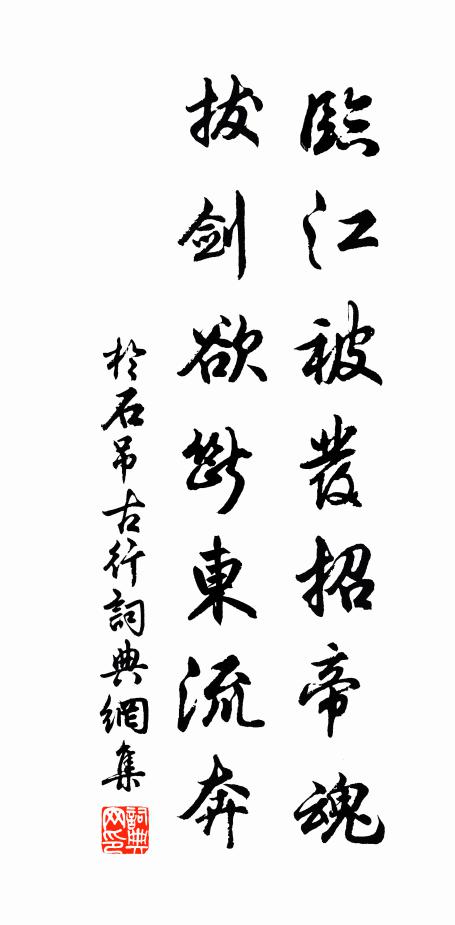 臨江被發招帝魂
拔劍欲斷東流奔
於石吊古行詞典網集
詞典
网印